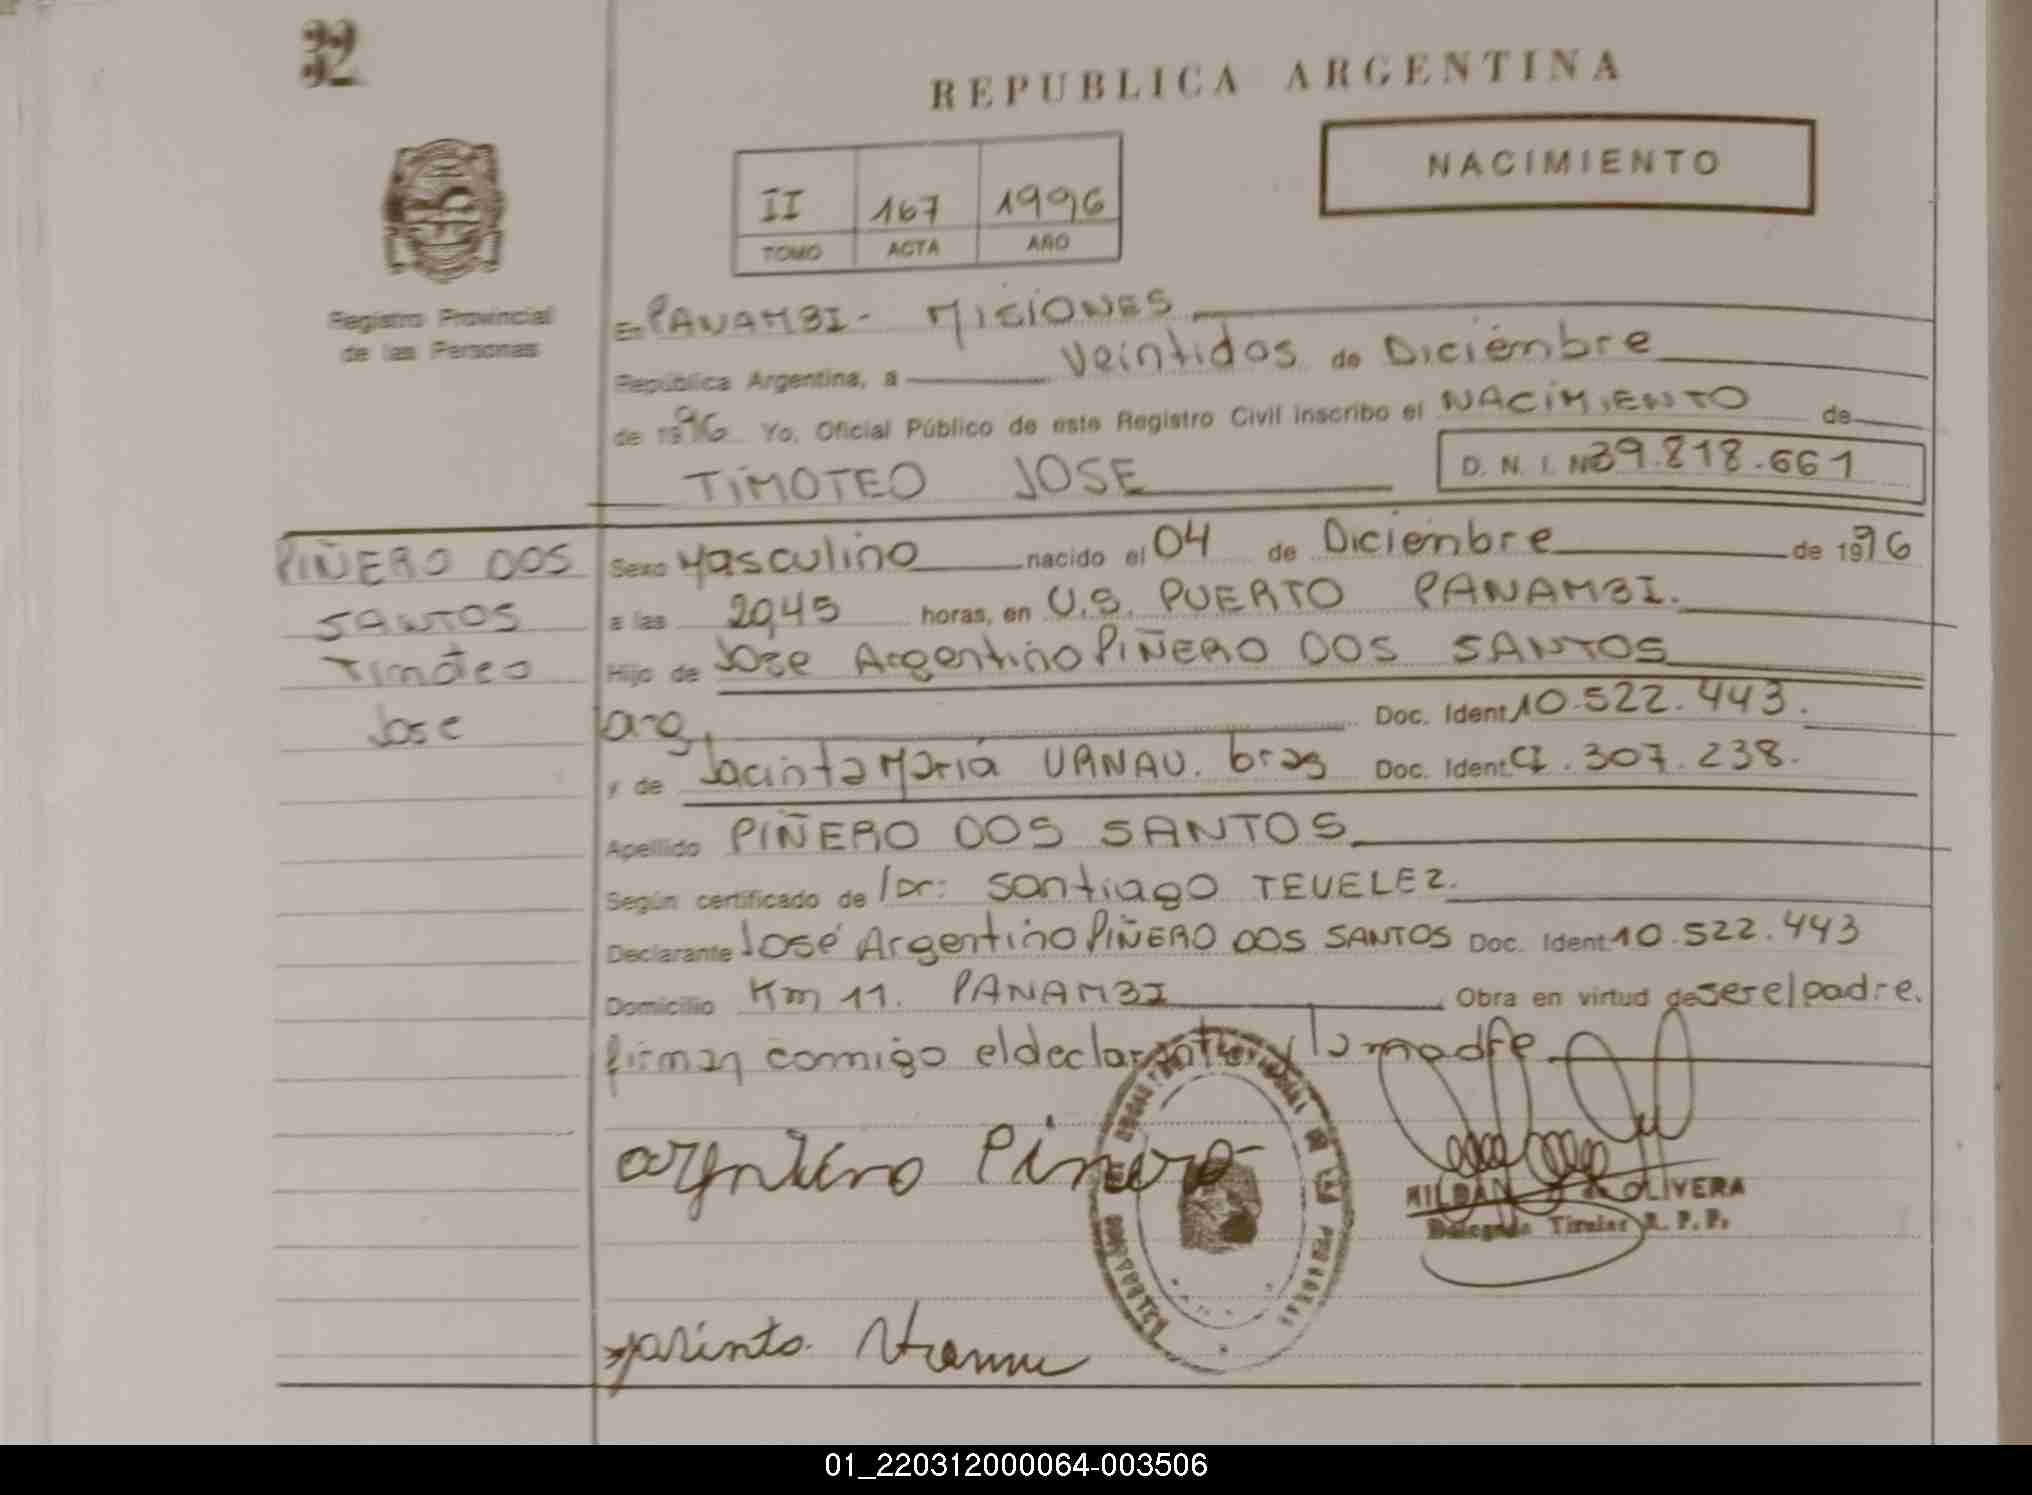 32
REPUBLICA ARGENTINA
NACIMIENTO
II 167 1996
TOMO ACTA AÑO
Registro Provincial
de las Personas
En PANAMBI - MISIONES
República Argentina, a Veintidos de Diciembre
de 1996 Yo, Oficial Público de este Registro Civil inscribo el NACIMIENTO de
TIMOTEO JOSE D. N. I. Nº 39.818.661
PIÑERO DOS
SANTOS
Timoteo
Jose
Sexo Masculino nacido el 04 de Diciembre de 1996
a las 20,45 horas, en U.S. PUERTO PANAMBI.
Hijo de Jose Argentino PIÑERO DOS SANTOS
arg. Doc. Ident. 10.522.443.
y de Jacinta Maria URNAU. bras Doc. Ident. CI. 307.238.
Apellido PIÑERO DOS SANTOS
Según certificado de Dr: Santiago TEVELEZ.
Declarante José Argentino PIÑERO DOS SANTOS Doc. Ident. 10.522.443
Domicilio Km 11. PANAMBI Obra en virtud de ser el padre.
firman conmigo el declarante y la madre
argntino Pinero
DE OLIVERA
Delegada Titular R. P. P.
01_220312000064-003506